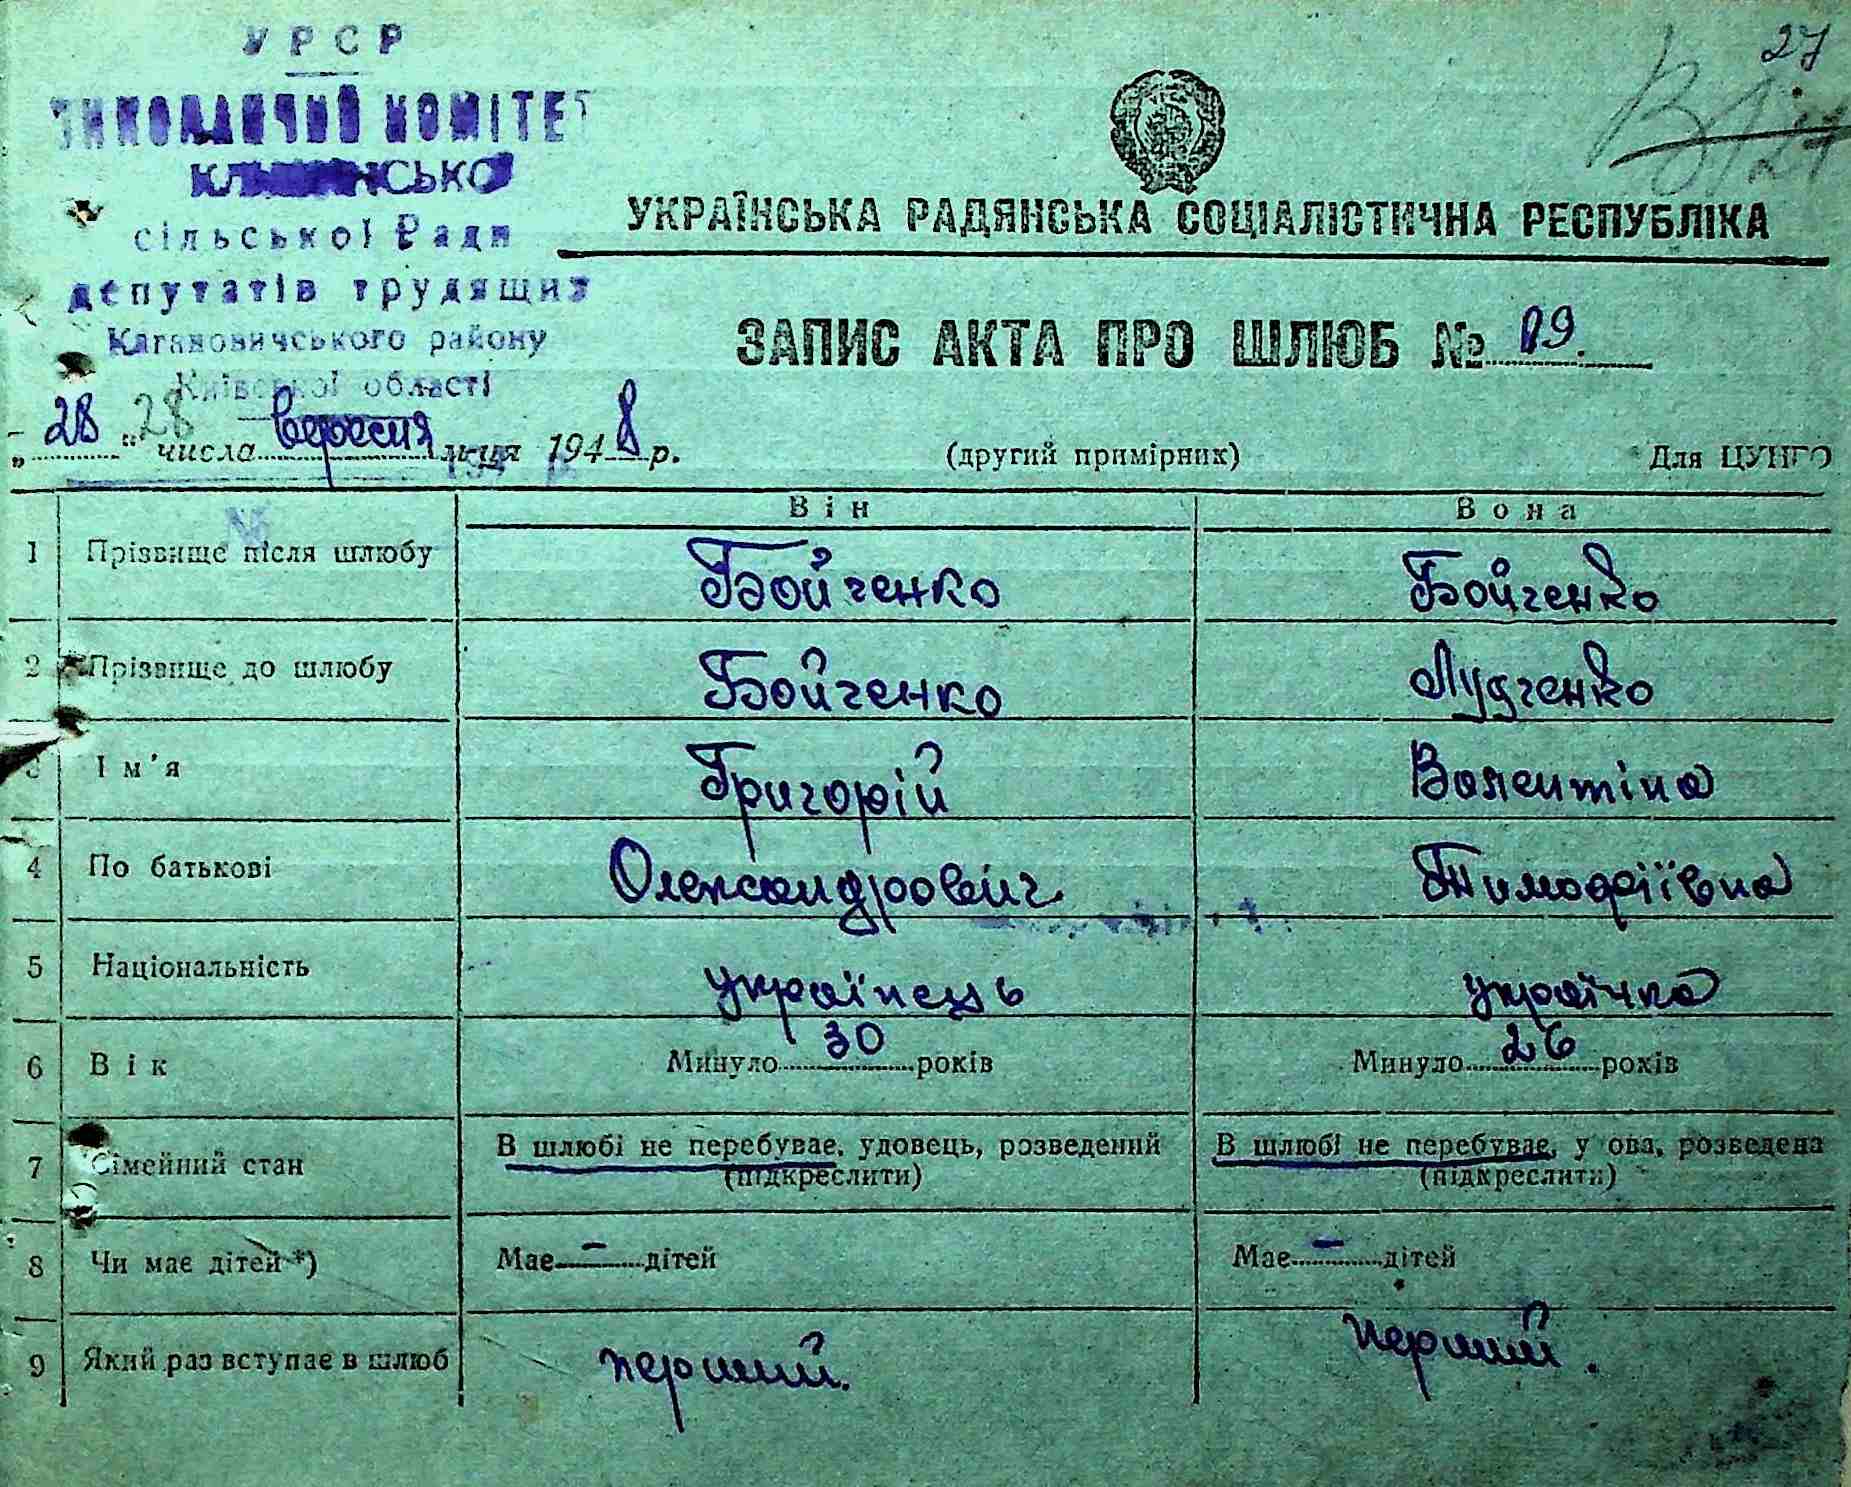 УРСР
27
ВИКОНАВЧИЙ КОМІТЕТ
сільської Ради
УКРАЇНСЬКА РАДЯНСЬКА СОЦІАЛІСТИЧНА РЕСПУБЛІКА
депутатів трудящих
Кагановичського району
Київської області
ЗАПИС АКТА ПРО ШЛЮБ № 19.
„28" 28 числа вересня м-ця 1948 р.
(другий примірник)
Для ЦУНГО
Він Вона
1 Прізвище після шлюбу Бойченко Бойченко
2 Прізвище до шлюбу Бойченко Лудченко
3 Ім'я Григорій Валентіна
4 По батькові Олександрович Тимофіївна
5 Національність українець українка
6 Вік Минуло 30 років Минуло 26 років
7 Сімейний стан В шлюбі не перебуває, удовець, розведений В шлюбі не перебуває, у ова, розведена
(підкреслити) (підкреслити)
8 Чи має дітей *) Має – дітей Має – дітей
9 Який раз вступає в шлюб перший. перший.